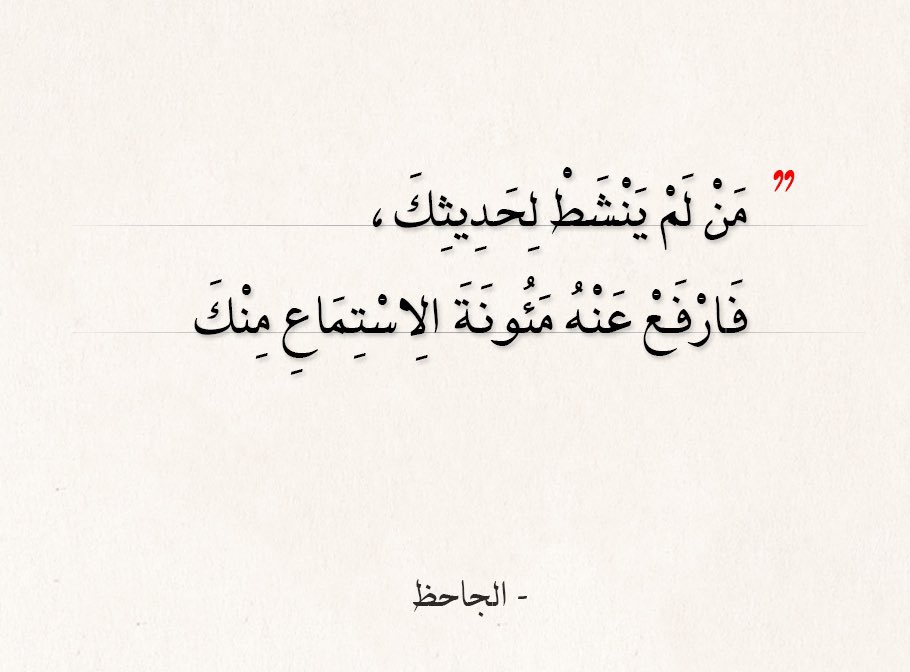 ” مَنْ لَمْ يَنْشَطْ لِحَدِيثِكَ ،
فَارْفَعْ عَنْهُ مَئُونَةَ الِاسْتِمَاعِ مِنْكَ
- الجاحظ